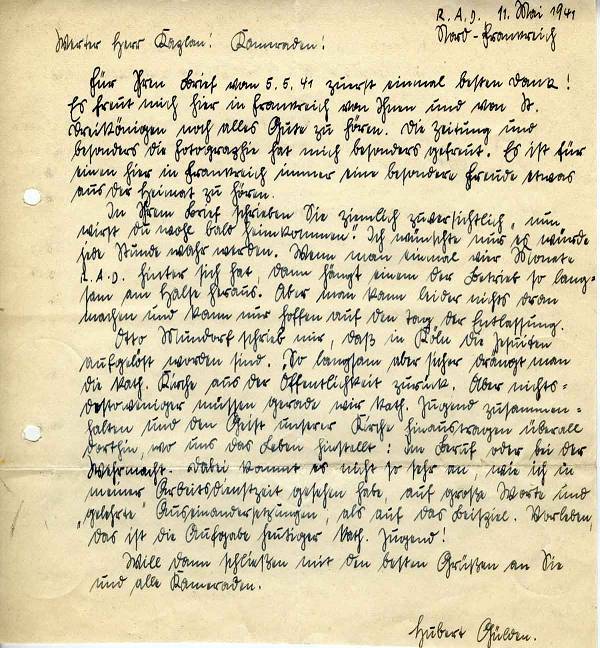 R.A.D. 11. Mai 1941
Nord-Frankreich
Werter Herr Kaplan! Kameraden!
Für Ihren Brief vom 5.5.41 zuerst einmal besten Dank!
Es freut mich hier in Frankreich von Ihnen und von St.
Dreikönigen noch alles Gute zu hören. Die Zeitung und
besonders die Fotographie hat mich besonders gefreut. Es ist für
einen hier in Frankreich immer eine besondere Freude etwas
aus der Heimat zu hören.
In Ihrem Brief schrieben Sie ziemlich zuversichtlich „nun
wirst du wohl bald heimkommen". Ich wünschte nur es würde
jede Stunde wahr werden. Wenn man einmal vier Monate
R.A.D. hinter sich hat, dann hängt einem der Betrieb so lang-
sam am Halse heraus. Aber man kann leider nichts dran
machen und kann nur hoffen auf den Tag der Entlassung.
Otto Mundorf schrieb mir, daß in Köln die Jesuiten
aufgelöst worden sind. So langsam aber sicher drängt man
die kath. Kirche aus der Öffentlichkeit zurück. Aber nichts=
destoweniger müssen gerade wir kath. Jugend zusammen=
halten und den Geist unserer Kirche hinaustragen überall
dorthin, wo uns das Leben hinstellt: im Beruf oder bei der
Wehrmacht. Dabei kommt es nicht so sehr an, wie ich in
meiner Arbeitsdienstzeit gesehen habe, auf große Worte und
„gelehrte" Auseinandersetzungen, als auf das Beispiel. Vorleben,
das ist die Aufgabe heutiger kath. Jugend!
Will dann schließen mit den besten Grüßen an Sie
und alle Kameraden.
Hubert Gülden.